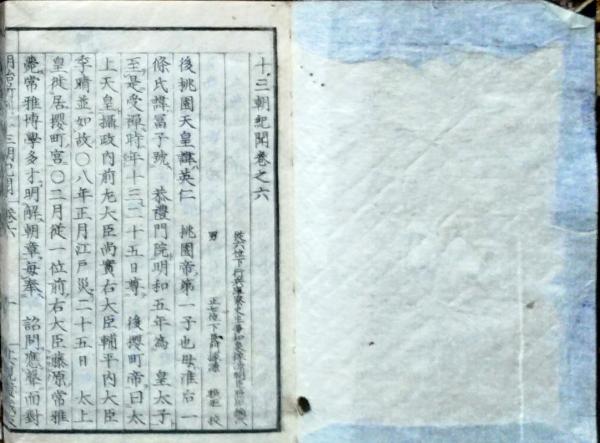 十三朝紀聞卷之六
男
後桃園天皇諱英仁 桃園帝第一子也母准后一
條氏諱富子號 恭禮門院明和五年為 皇太子
至是受禪時年十三二十五日尊 後櫻町帝曰太
上天皇攝政內前左大臣尚實右大臣輔平內大臣
季晴並如故〇八年正月江戶災二十五日 太上
皇徙居櫻町宮〇二月從一位前右大臣藤原常雅
薨常雅博學多才明解朝章每奉 詔問應聲而對
明治 三朝紀聞 卷六 一